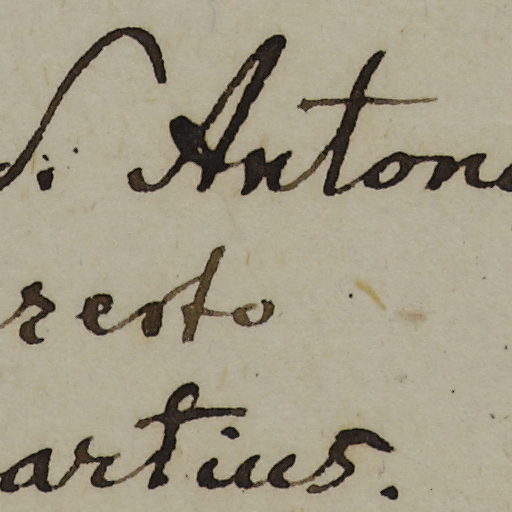 S. Anton
resto
artius.